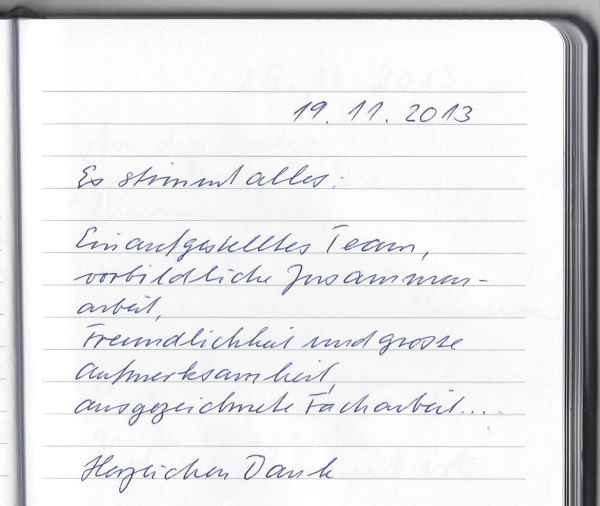 19. 11. 2013
Es stimmt alles:
Ein aufgestelltes Team,
vorbildliche Zusammen-
arbeit,
Freundlichkeit und grosse
Aufmerksamkeit,
ausgezeichnete Facharbeit...
Herzlichen Dank